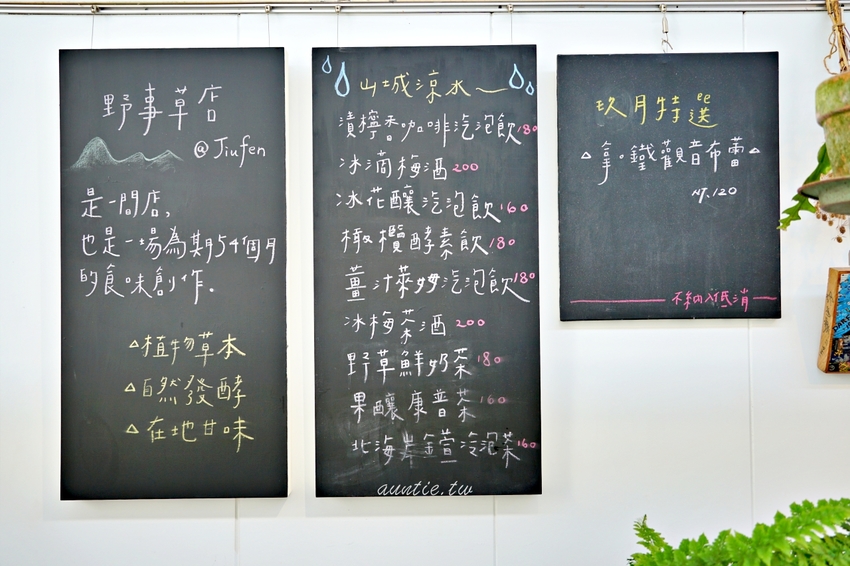 野事草店
@Jiufen
是一間店,
也是一場為期54個月
的食味創作。
△植物草本
△自然發酵
△在地甘味
山城涼水
漬檸香咖啡汽泡飲180
冰滴梅酒200
冰花釀汽泡飲160
橄欖酵素飲180
薑汁萊姆汽泡飲180
冰梅茶酒200
野草鮮奶茶180
果釀康普茶160
北海岸金萱冷泡茶160
auntie.tw
玖月特選
△拿鐵觀音布蕾△
NT.120
不納入低消